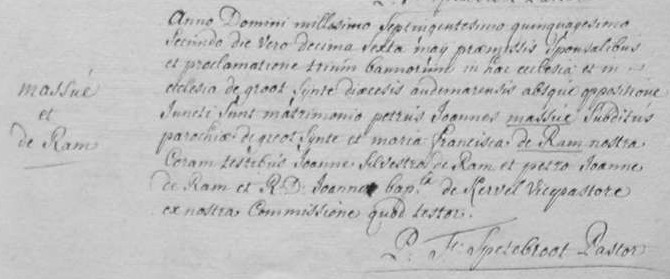 Anno Domini millesimo septingentesimo quinquagesimo
secundo die vero decima sexta maij præmissis sponsalibus
et proclamatione trium bannorum in hac ecclesia et in
ecclesia de groot Synte diæcesis audemarensis absque oppositione
Juncti sunt matrimonio petrus Joannes massué subditus
parochiæ de groot Synte et maria francisca de Ram nostra
Coram testibus Joanne Silvestro de Ram et petro Joanne
de Ram et R: D: Joanne bap:ta de Kervel Vicepastore
ex nostra Commissione quod testor.
massué
et
de Ram
P: Fr: Spetebroot Pastor